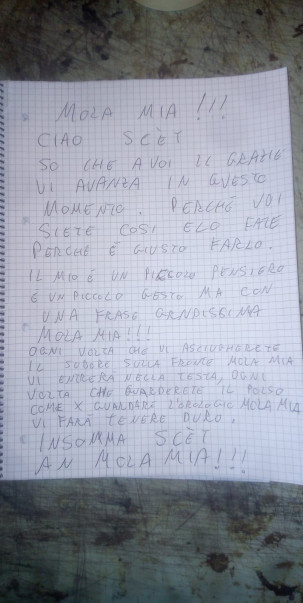 MOLA MIA!!!
CIAO SCÈT
SO CHE A VOI IL GRAZIE
VI AVANZA IN QUESTO
MOMENTO. PERCHÉ VOI
SIETE COSI E LO FATE
PERCHE È GIUSTO FARLO.
IL MIO È UN PICCOLO PENSIERO
È UN PICCOLO GESTO MA CON
UNA FRASE GRNDISSIMA
MOLA MIA!!!
OGNI VOLTA CHE VI ASCIUGHERETE
IL SUDORE SULLA FRONTE MOLA MIA
VI ENTRERÀ NELLA TESTA, OGNI
VOLTA CHE GUARDERETE IL POLSO
COME X GUARDARE L'OROLOGIO MOLA MIA
VI FARÀ TENERE DURO.
INSOMMA SCÈT
AN MOLA MIA!!!